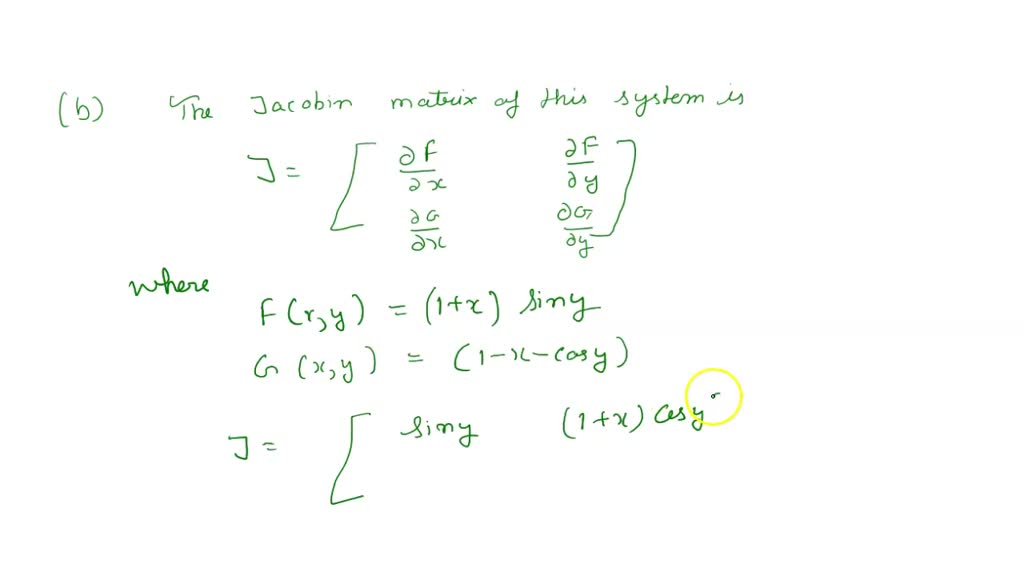 (b) The Jacobin matrix of this system is
J = [ ∂F/∂x ∂F/∂y
∂G/∂x ∂G/∂y ]
where
F(x,y) = (1+x) siny
G(x,y) = (1-x-cosy)
J = [ siny (1+x) cosy